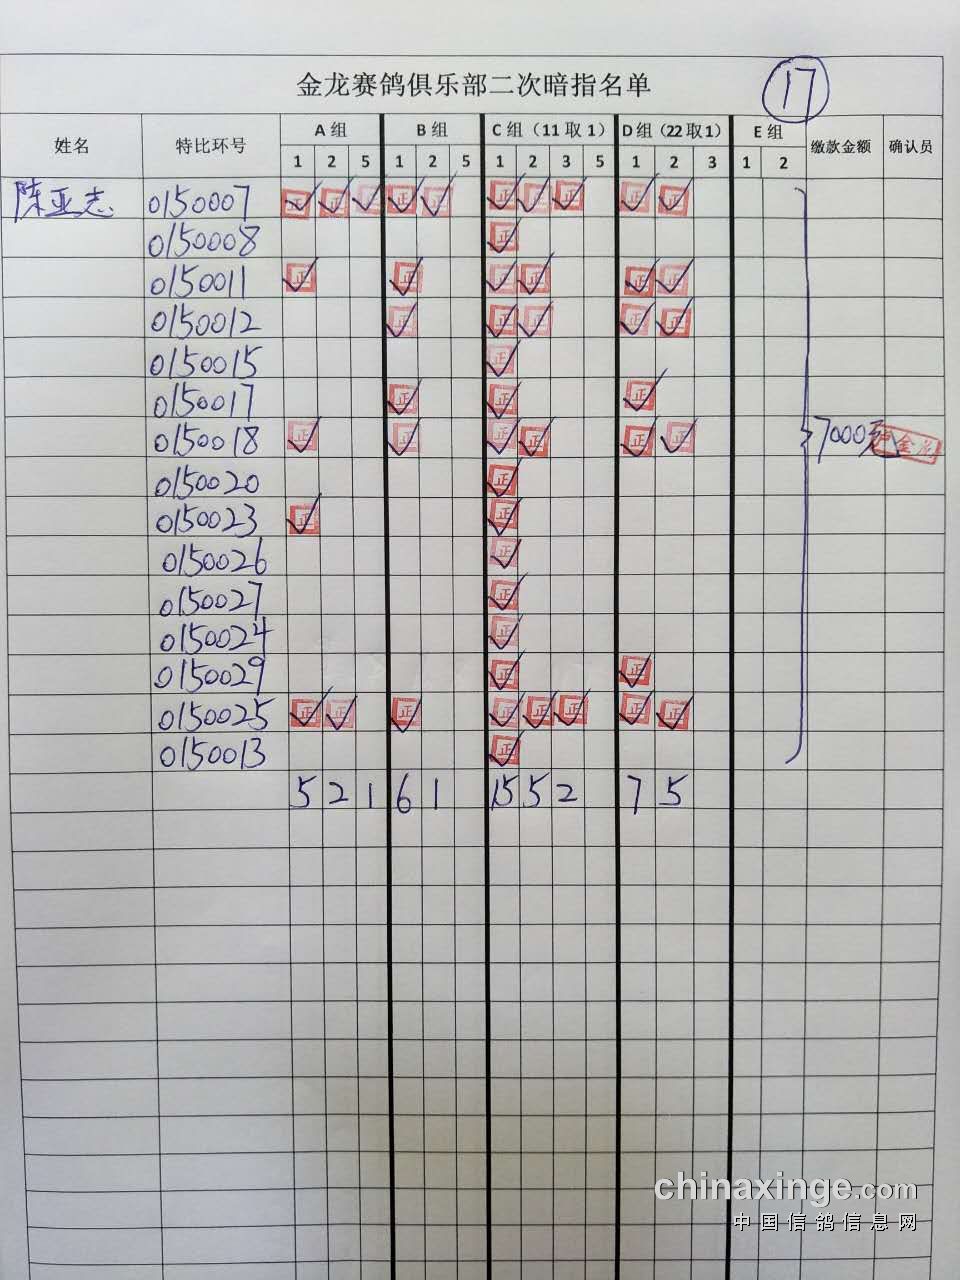 金龙赛鸽俱乐部二次暗指名单 17
姓名 特比环号 A 组 B 组 C 组（11 取 1） D 组（22 取 1） E 组 缴款金额 确认员
1 2 5 1 2 5 1 2 3 5 1 2 3 1 2
陈亚志 0150007 正 ✓ 正 ✓ 正 ✓ 正 ✓ 正 ✓ 正 ✓ 正 ✓ 正 ✓ 正 ✓ 正 ✓
0150008 正 ✓
0150011 正 ✓ 正 ✓ 正 ✓ 正 ✓ 正 ✓ 正 ✓
0150012 正 ✓ 正 ✓ 正 ✓ 正 ✓ 正 ✓
0150015 正 ✓
0150017 正 ✓ 正 ✓ 正 ✓
0150018 正 ✓ 正 ✓ 正 ✓ 正 ✓ 正 ✓ 正 ✓ 7000元
0150020 正 ✓
0150023 正 ✓ 正 ✓
0150026 正 ✓
0150027 正 ✓
0150024 正 ✓
0150029 正 ✓ 正 ✓
0150025 正 ✓ 正 ✓ 正 ✓ 正 ✓ 正 ✓ 正 ✓ 正 ✓ 正 ✓
0150013 正 ✓
5 2 1 6 1 15 5 2 7 5
chinaxinge.com
中国信鸽信息网